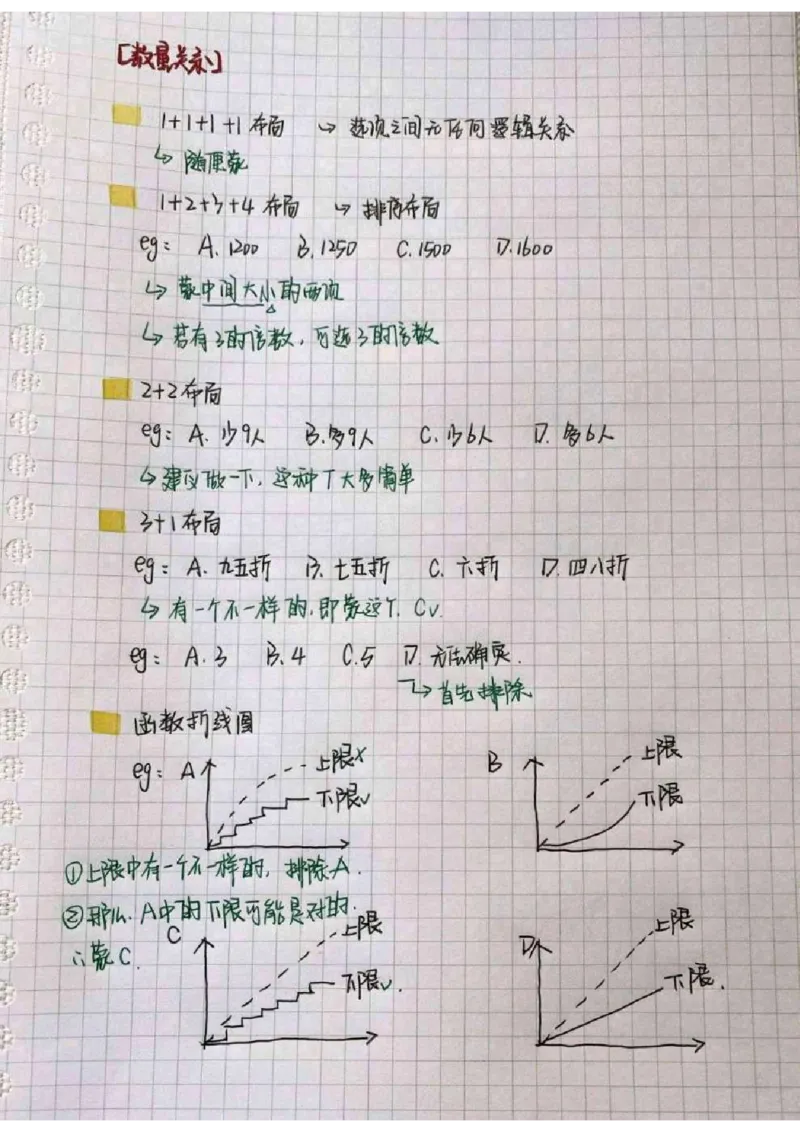 [数量关系]
1+1+1+1布局 ↳ 选项之间无任何逻辑关系
↳ 随便蒙
1+2+3+4布局 ↳ 排序布局
eg: A.1200 B.1250 C.1500 D.1600
↳ 蒙中间大小的两项
↳ 若有3的倍数,可选3的倍数
2+2布局
eg: A.少9人 B.多9人 C.少6人 D.多6人
↳ 建议做一下,这种T大多简单
3+1布局
eg: A.九五折 B.七五折 C.六折 D.四八折
↳ 有一个不一样的,即蒙这个. C√.
eg: A.3 B.4 C.5 D.无法确定.
↳ 首先排除
函数折线图
eg: A 上限× 下限√
B 上限 下限
①上限中有一个不一样的,排除A.
②那么.A中的下限可能是对的.
∴蒙C.
C 上限 下限√.
D 上限 下限.